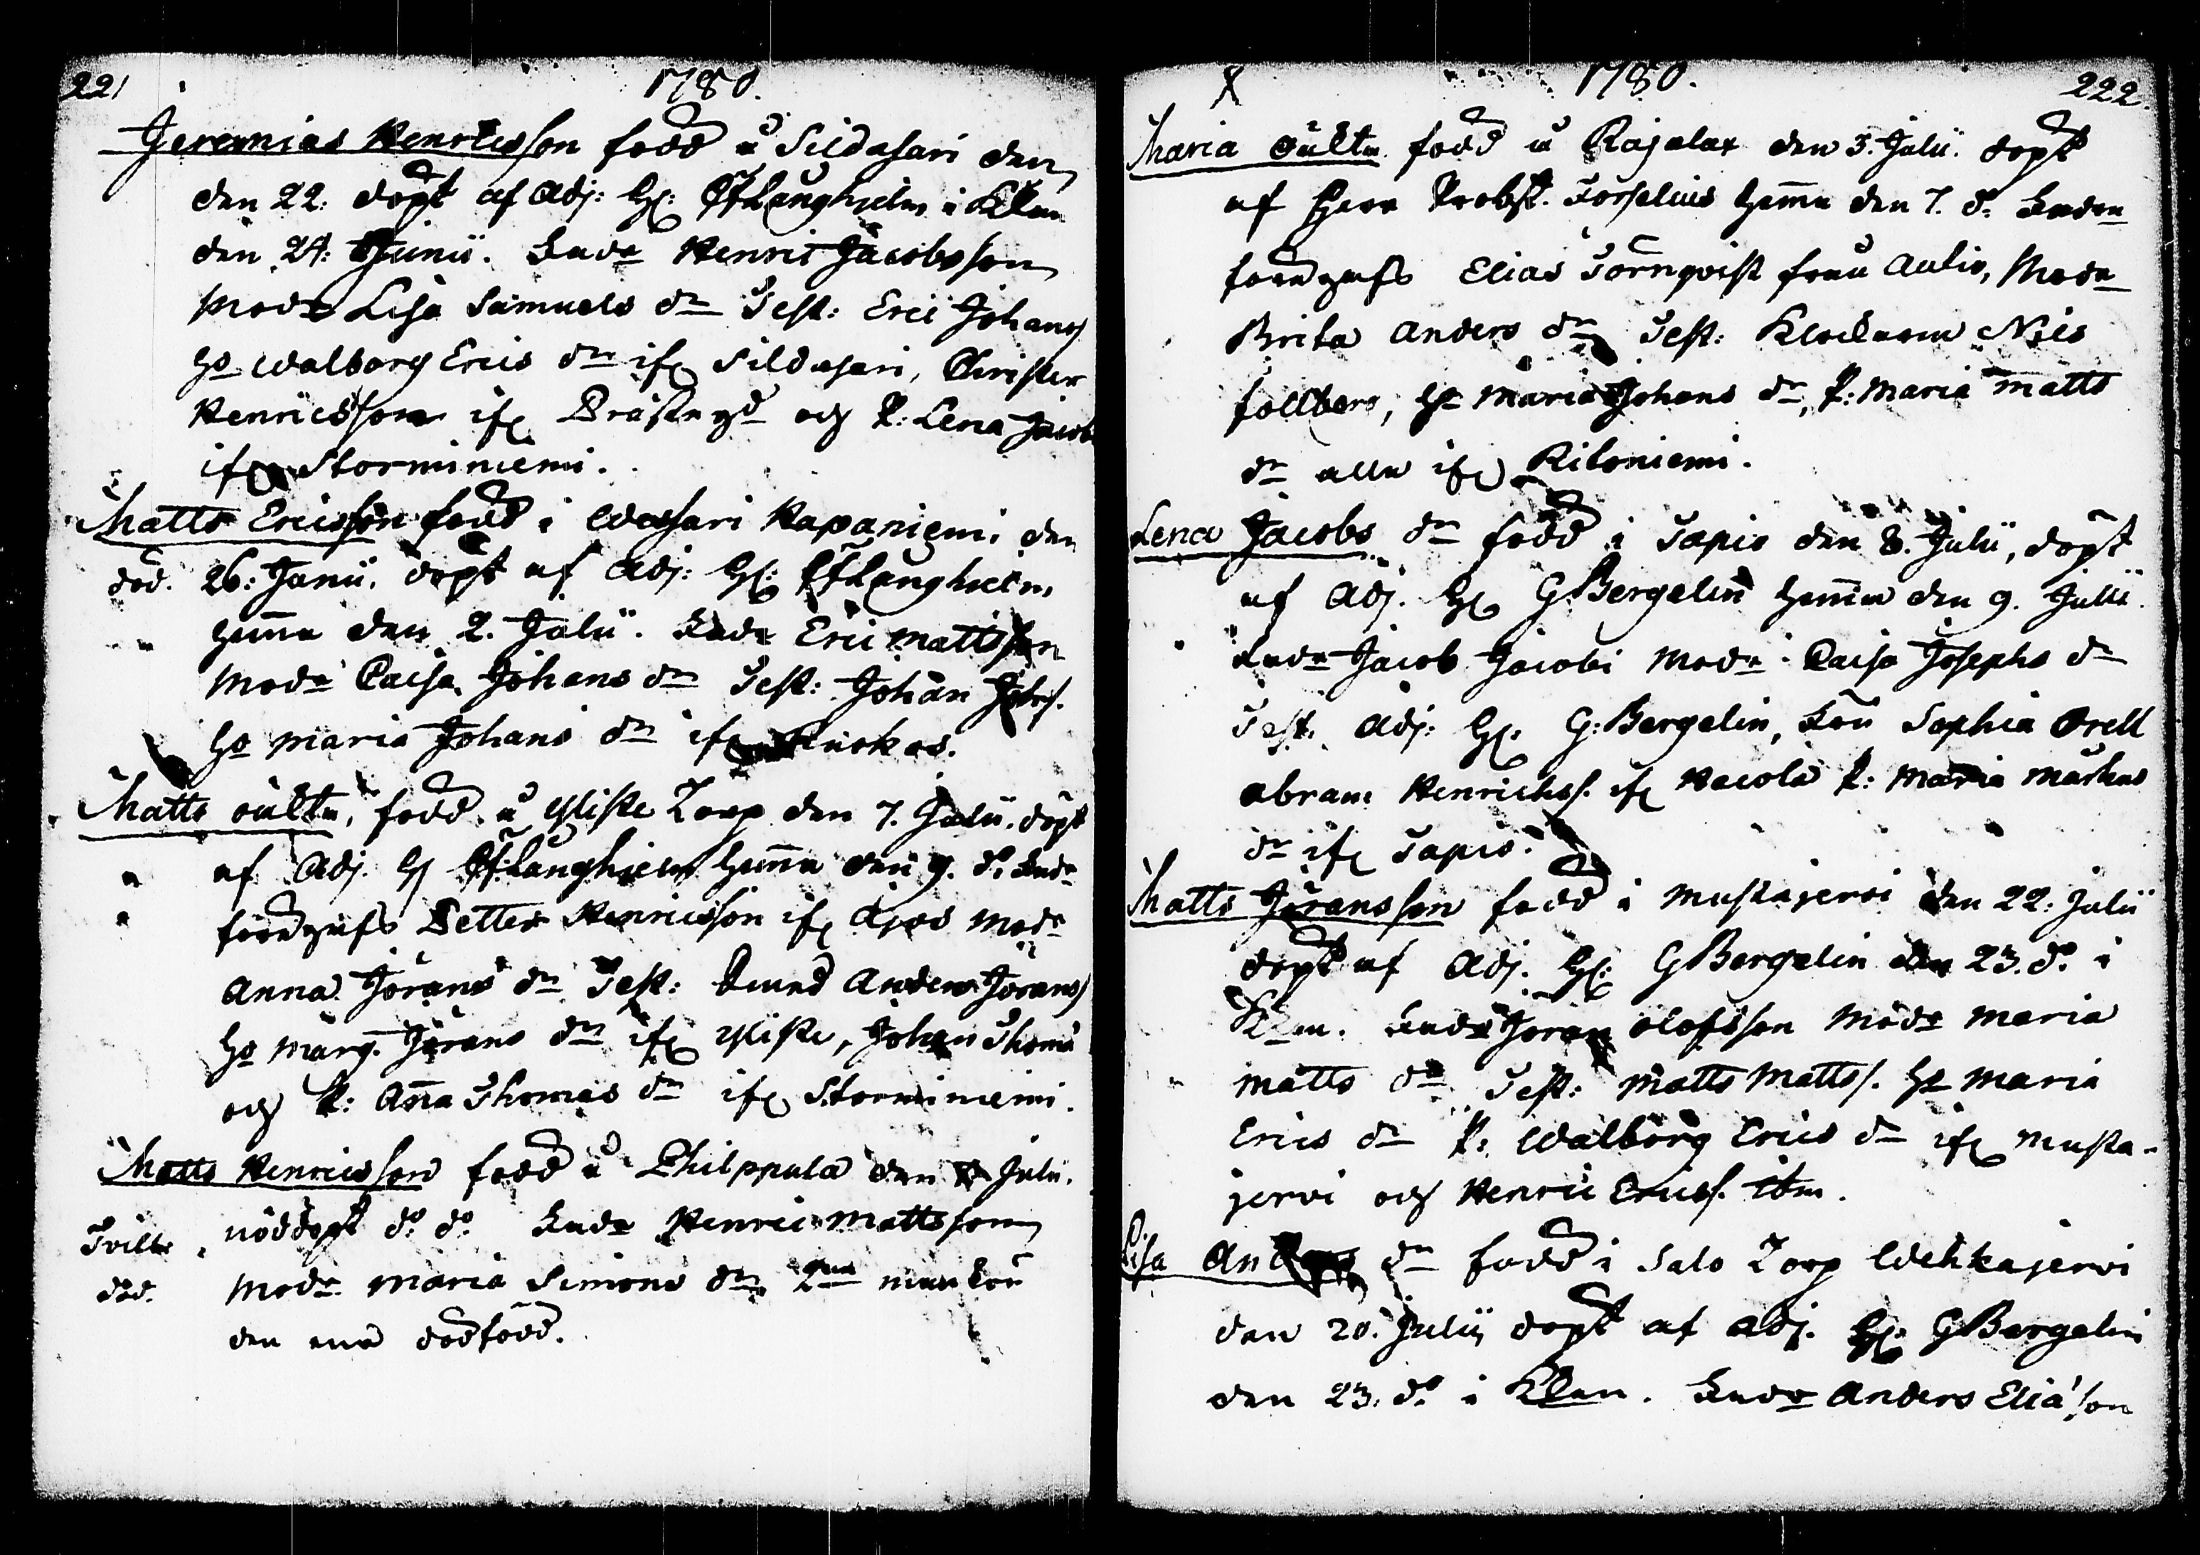 221
1780.
Jeremias Henricsson född å Sildasari den
den 22. döpt af Adj: H: Långhjelm i Kkan
den 24. Junii. Fadr Henric Jacobsson
Modr Lisa Samuels dr Test: Eric Johans
Ho Walborg Erics dr ifr Sildasari, Christer
Henricsson ifr Prästegd och P: Lena Jacobs
ifr Storminiemi.
Matts Ericsson född i Wessari Kapaniemi den
död. 26. Junii. döpt af Adj: H: Långhielm
hemma den 2. Julii. Fadr Eric Mattsson
Modr Caisa Johans dr Test: Johan Johs.
Ho Maria Johans dr ifr
Matts oäkta, född å Yliske Torp den 7. Julii. döpt
af Adj. H Långhielm hemma den 9. do. Fadr
föregifs Petter Henricsson ifr Ajos Modr
Anna Jörans dr Test: Anders Jörans
Ho Marg. Jörans dr ifr Yliske, Johan Thoms
och P: Anna Thomas dr ifr Storminiemi.
Matts Henricsson född å Philppula den Julii.
Tvill. nöddöpt do do. Fadr Henric Mattsson
död. Modr Maria Simons dr 2ne mankön
den ena dödfödd.
1780.
222.
Maria oäkta född å Rajalax den 3. Julii. döpt
af Herr Probst. Forselius hemma den 7. do. Fadren
föregifs Elias Törnqvist från Aulio, Modr
Brita Anders dr Test: Klockaren Nils
Follberg, Ho Maria Johans dr, P: Maria Matts
dr alla ifr Kiloniemi.
Lena Jacobs dr född i Tapio den 8. Julii, döpt
af Adj. H GBergelin hemma den 9. Julii.
Fadr Jacob Jacobi Modr Caisa Josephs dr
Test. Adj: H. G: Bergelin, Fru Sophia Orell
Abram Henrichss. ifr Hacola P: Maria Markus
dr ifr Tapio.
Matts Jöransson född i Mustajerwi den 22. Julii
döpt af Adj. H: GBergelin den 23. do. i
Kkan. Fadr Jöran Olofsson Modr Maria
Matts dr Test: Matts Matts. Ho Maria
Erics dr P: Walborg Erics dr ifr Musta-
jerwi och Henric Erics. ibm.
Lisa Anders dr född i Salo Torp Wehkajerwi
den 20. Julii döpt af Adj. H: GBergelin
den 23. do. i Kkan. Fadr Anders Eliasson